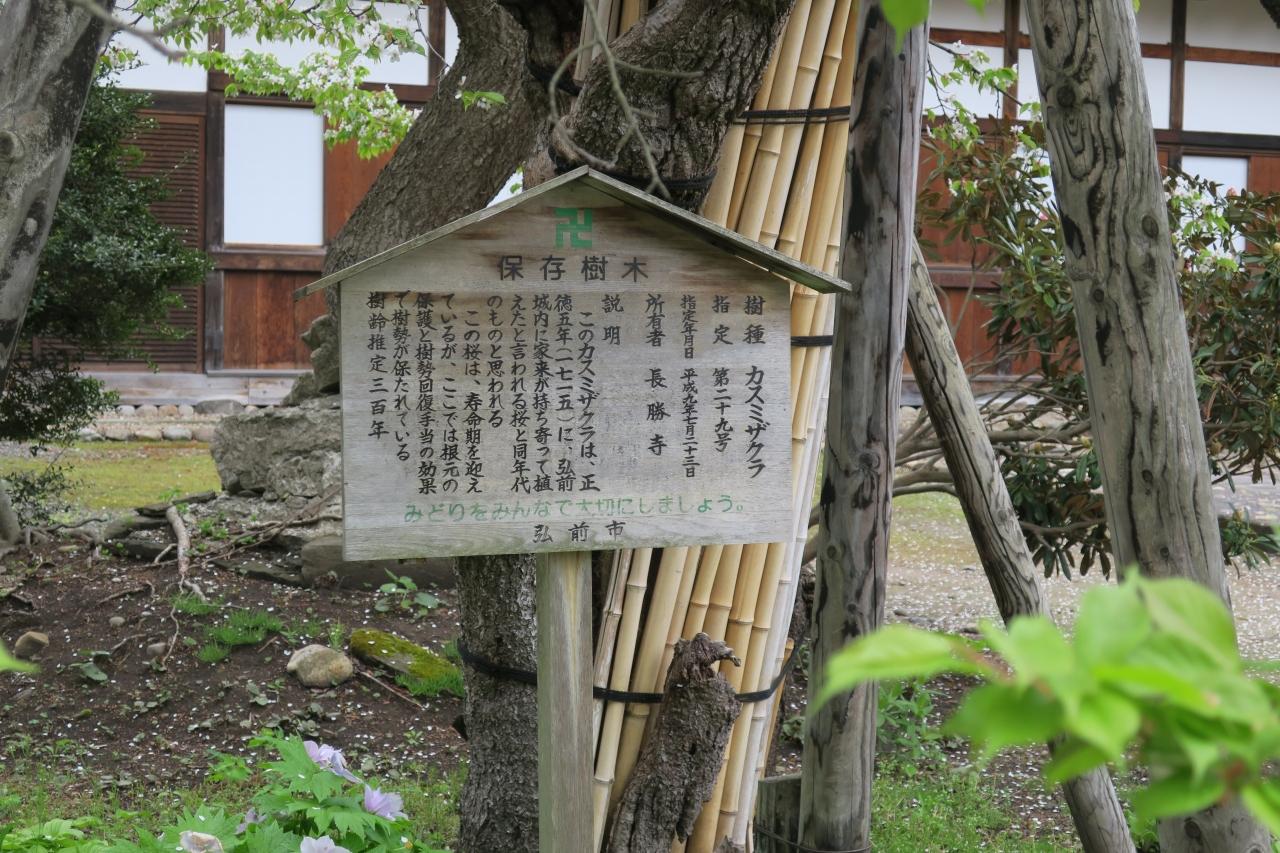 卍
保存樹木
樹種 カスミザクラ
指定 第二十九号
指定年月日 平成九年七月二十三日
所有者 長勝寺
説明
このカスミザクラは、正
徳五年(一七一五)に、弘前
城内に家来が持ち寄って植
えたと言われる桜と同年代
のものと思われる
この桜は、寿命期を迎え
ているが、ここでは根元の
保護と樹勢回復手当の効果
で樹勢が保たれている
樹齢推定三百年
みどりをみんなで大切にしましょう。
弘前市